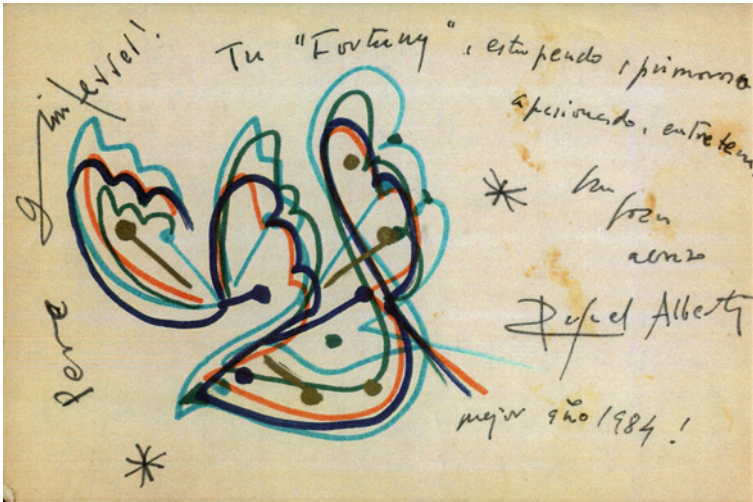 Pere Gimferrer!
Tu "Fortuny", estupendo, primoroso
apasionado, entreten
Un gran
abrazo
Rafael Alberti
mejor año 1984!